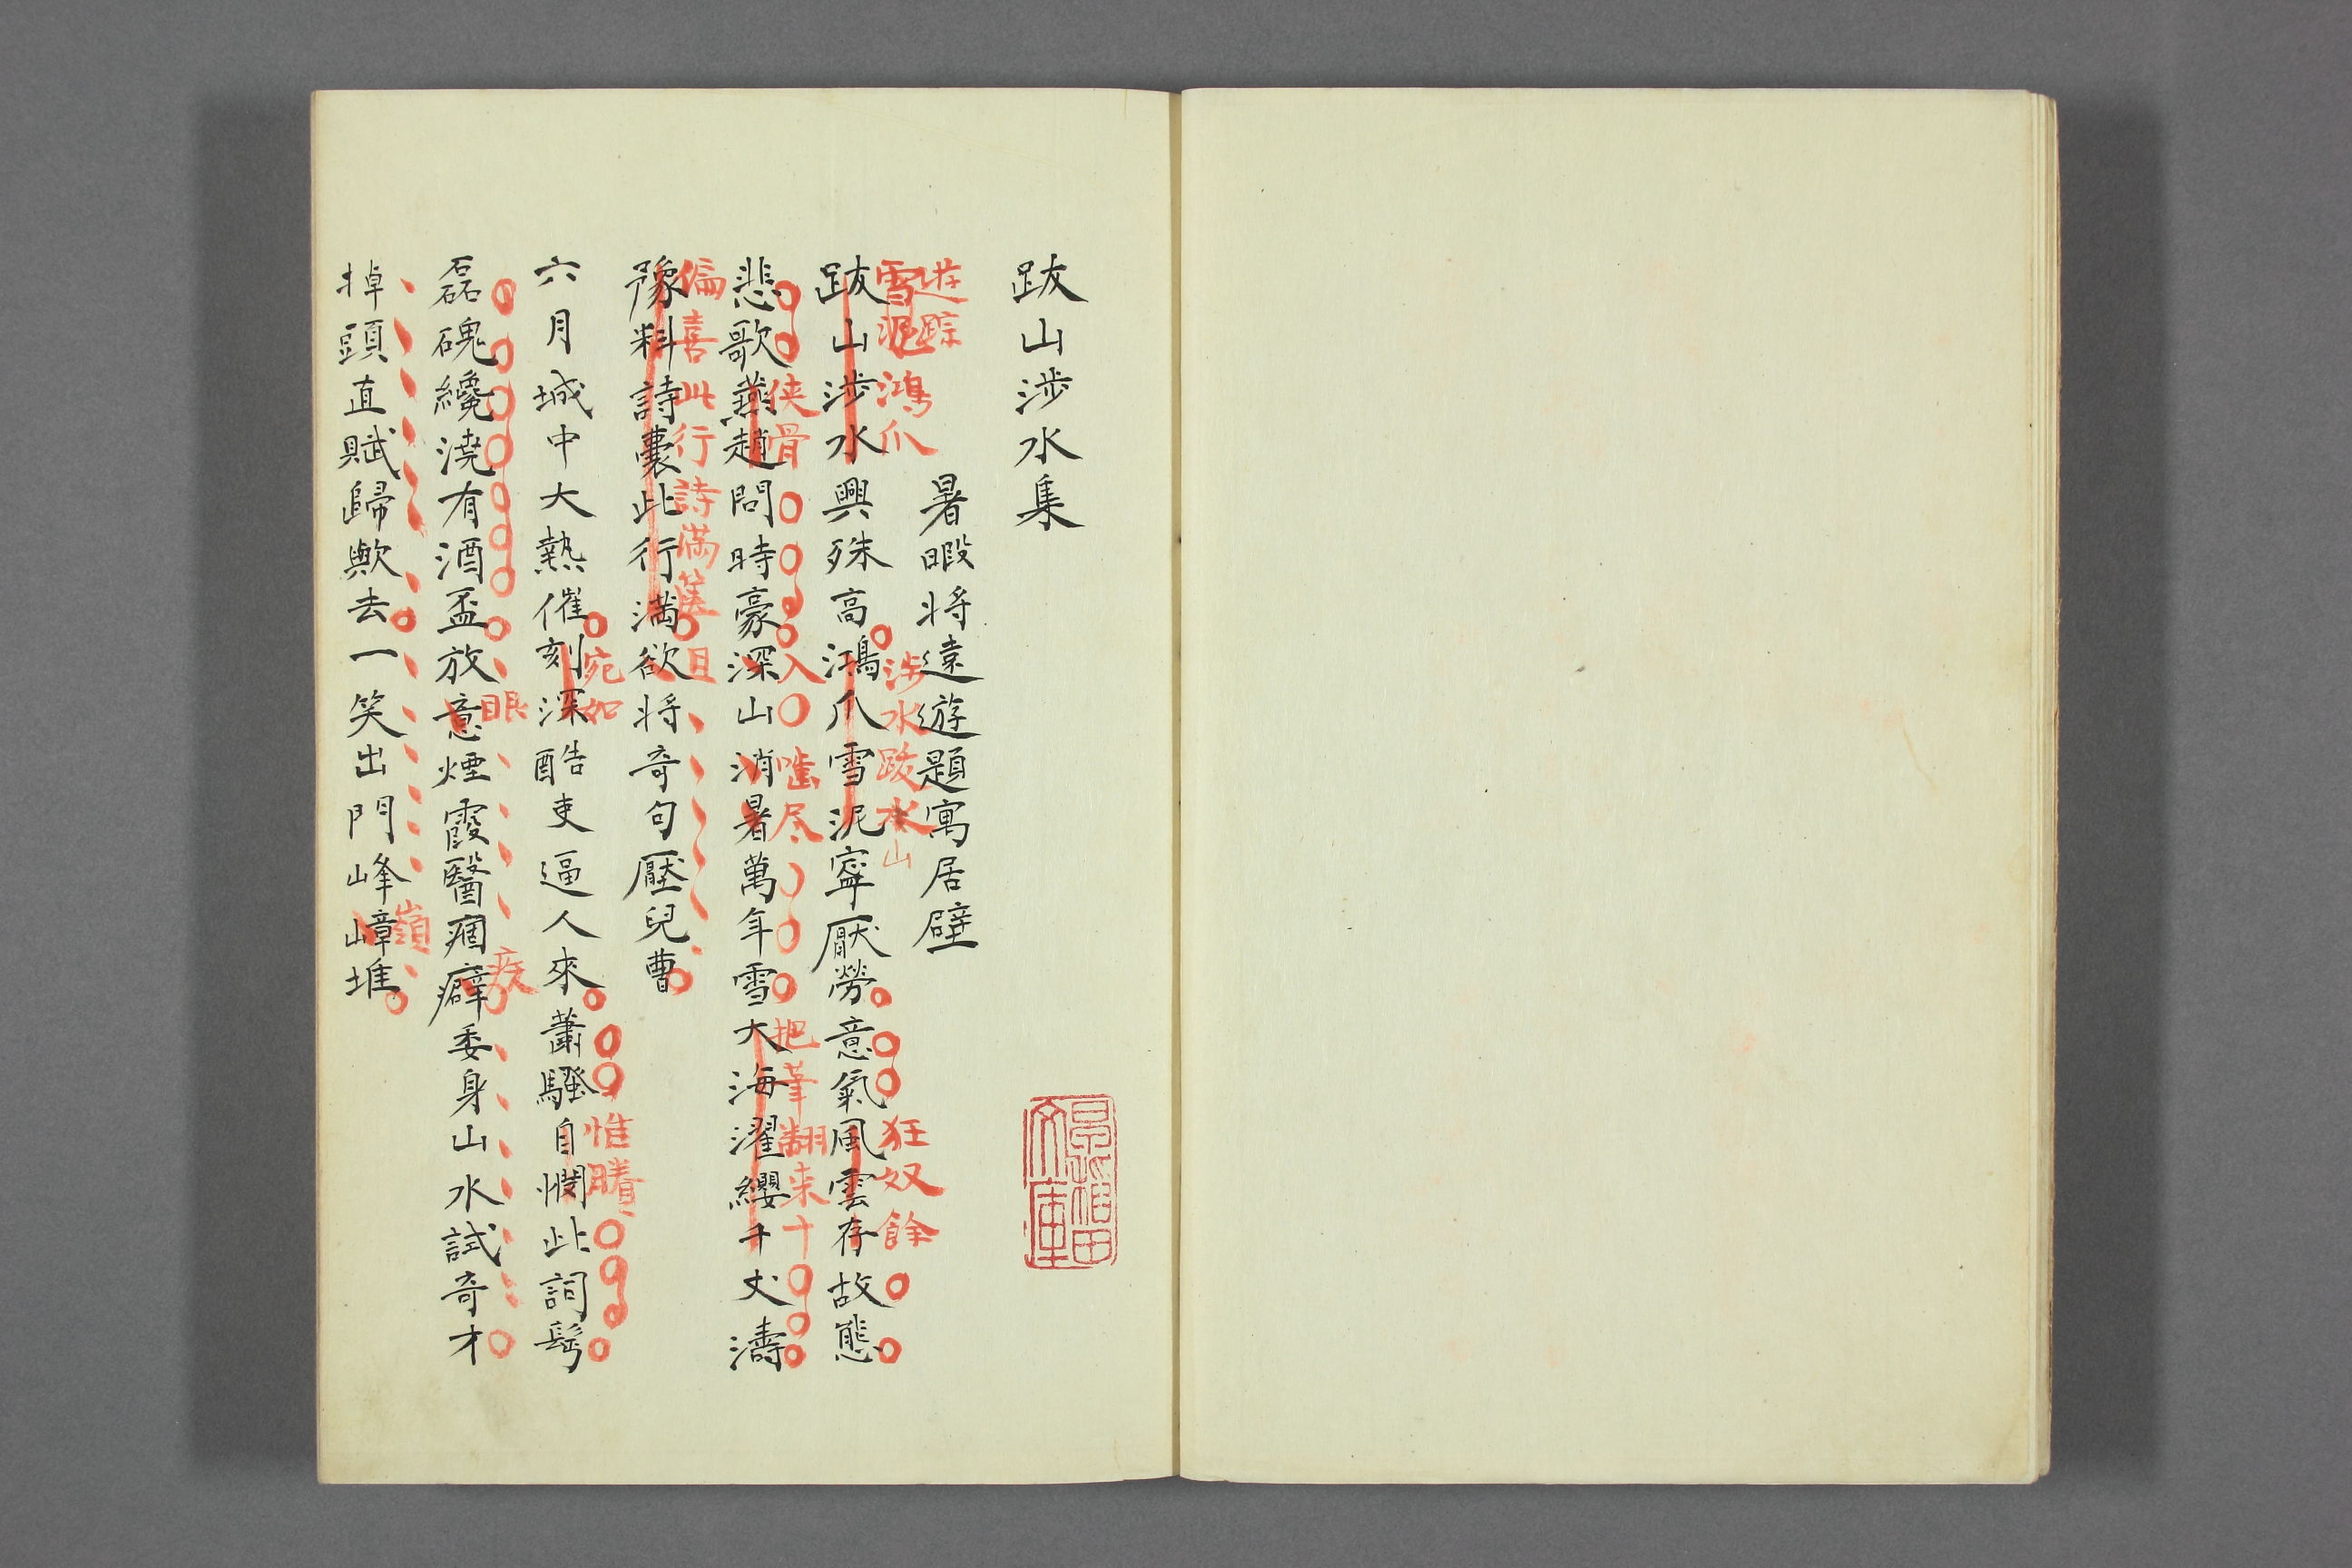 跋山涉水集
暑暇将遠遊題寓居壁
遊踪
雪泥鴻爪
涉水跋山
狂奴餘
跋山涉水興殊高鴻爪雪泥寧厭勞意氣風雲存故態
俠骨
入
嚙尽
把筆翻来十
悲歌燕趙問時豪深山消暑萬年雪大海濯纓千丈濤
偏喜此行詩満篋
且
豫料詩囊此行満欲将奇句壓兒曹
宛如
惟賸
六月城中大熱催刻深酷吏逼人來蕭騷自憫此詞髩
眼
疾
磊磈纔澆有酒盃放意煙霞醫痼癖委身山水試奇才
嶺
掉頭直賦歸歟去一笑出門峰嶂堆